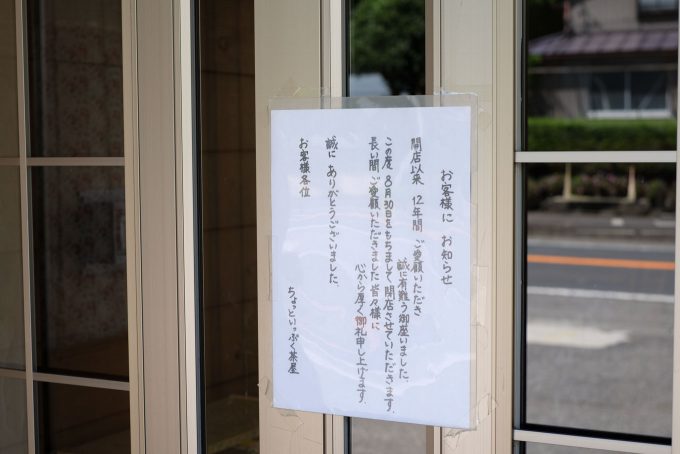 お客様に お知らせ
開店以来 12年間 ご愛顧いただき
誠に有難う御座いました。
この度 8月30日をもちまして 閉店させていただきます。
長い間 ご愛顧いただきました 皆々様に
心から厚く御礼申し上げます。
誠に ありがとうございました。
お客様各位
ちょっといっぷく茶屋